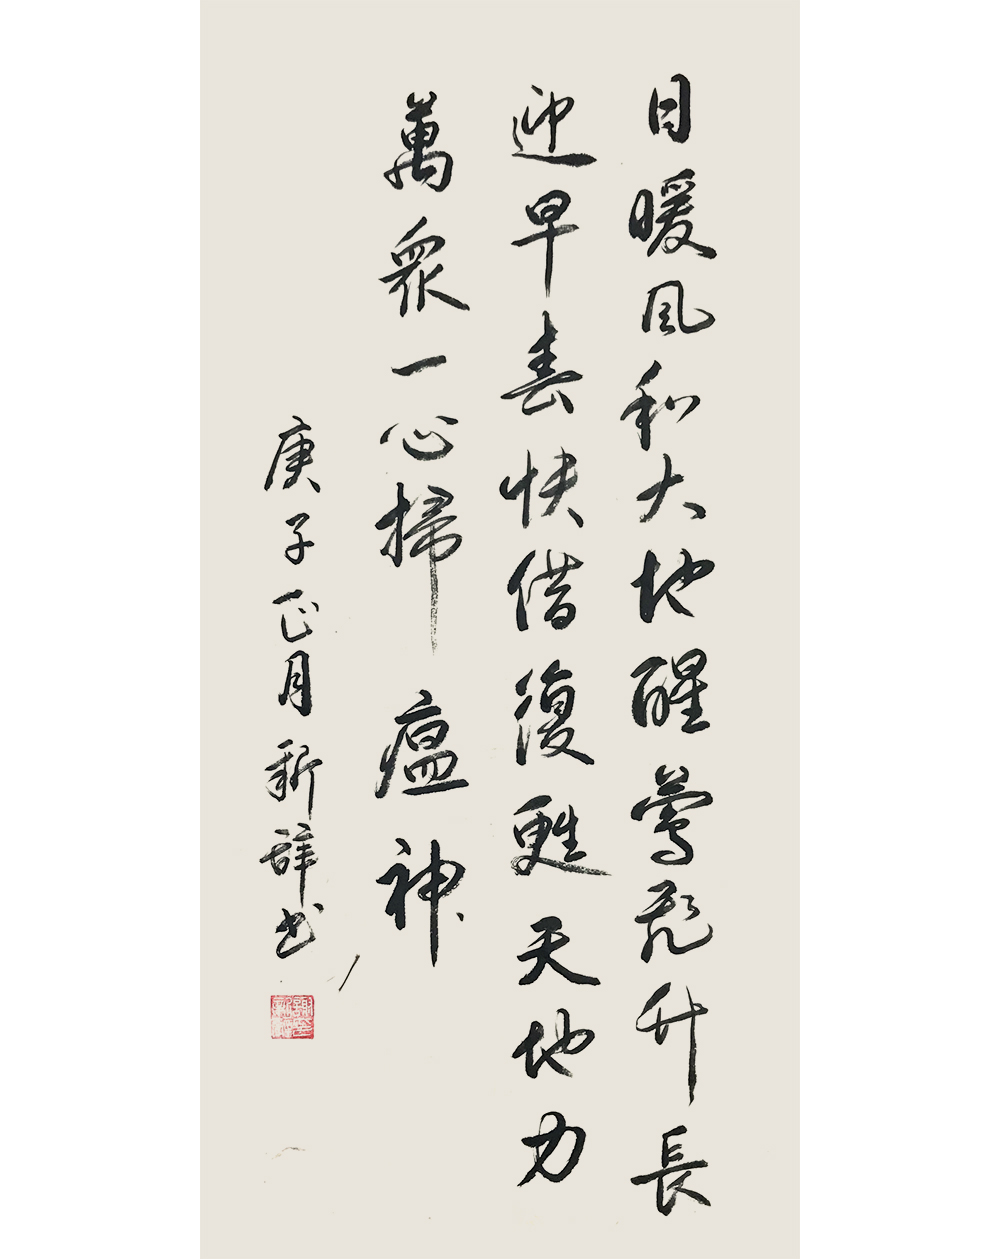 日暖風和大地醒鶯飛升長
迎早春快借復甦天地力
萬眾一心掃瘟神
庚子正月新辞书